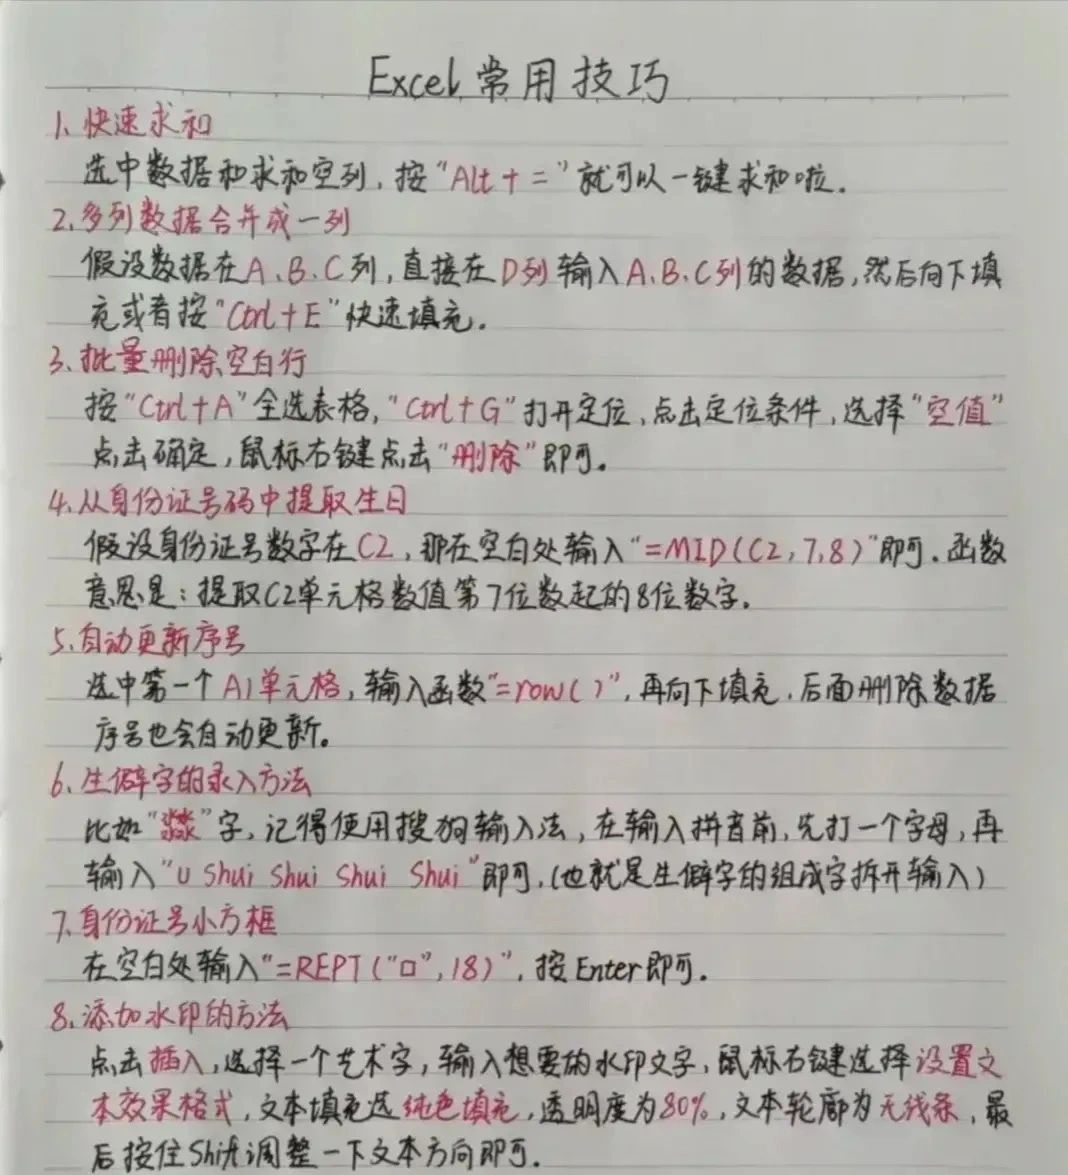 Excel常用技巧
1、快速求和
选中数据和求和空列，按“Alt+=”就可以一键求和啦.
2、多列数据合并成一列
假设数据在A、B、C列，直接在D列输入A、B、C列的数据，然后向下填
充或者按“Ctrl+E”快速填充.
3、批量删除空白行
按“Ctrl+A”全选表格，“Ctrl+G”打开定位、点击定位条件，选择“空值”
点击确定，鼠标右键点击“删除”即可。
4、从身份证号码中提取生日
假设身份证号数字在C2，那在空白处输入“=MID(C2,7,8)”即可.函数
意思是：提取C2单元格数值第7位数起的8位数字.
5、自动更新序号
选中第一个A1单元格，输入函数“=row()”，再向下填充.后面删除数据
序号也会自动更新。
6、生僻字的录入方法
比如“㵘”字，记得使用搜狗输入法，在输入拼音前，先打一个字母，再
输入“U Shui Shui Shui Shui”即可.(也就是生僻字的组成字拆开输入)
7、身份证号小方框
在空白处输入“=REPT("□",18)”，按Enter即可.
8、添加水印的方法
点击插入，选择一个艺术字，输入想要的水印文字，鼠标右键选择设置文
本效果格式，文本填充选纯色填充，透明度为80%，文本轮廓为无线条，最
后按住Shift调整一下文本方向即可.